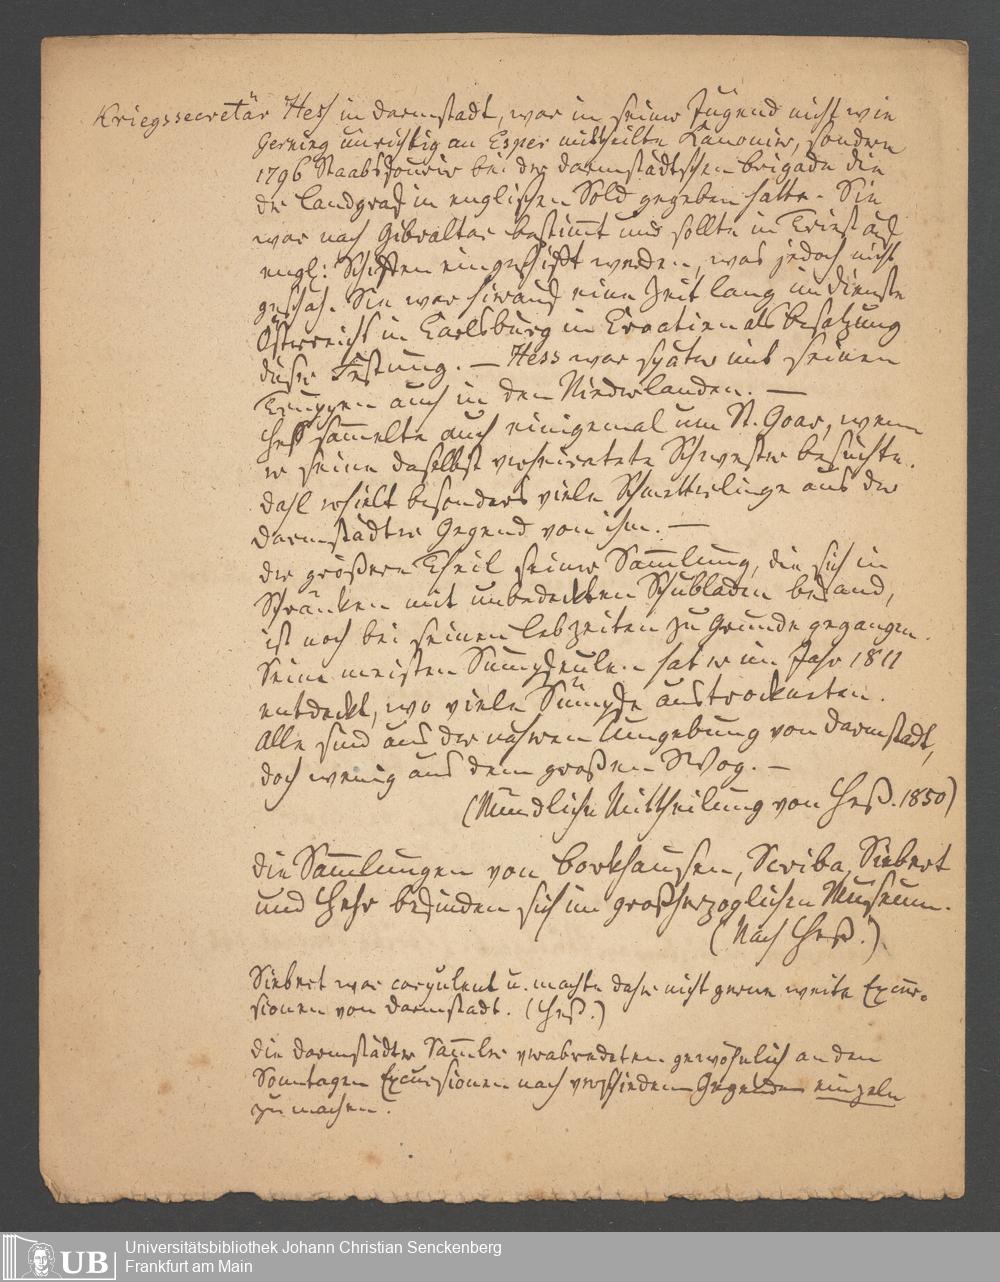 Kriegssecretär Hess in Darmstadt, war in seiner Jugend nicht wie
Gerning unrichtig an Esper mittheilte Kanonier, sondern
1796 Staabsfourir bei der darmstädtschen Brigade die
der Landgraf in englischen Sold gegeben hatte. Sie
war nach Gibraltar bestimmt und sollte in Triest auf
engl: Schiffen eingeschifft werden, was jedoch nicht
geschah. Sie war hierauf eine Zeit lang im Dienste
Östrreichs in Carlsburg in Croatien als Besatzung
dieser Festung. — Hess war später mit seinen
Truppen auch in den Niederlanden. —
Heß sam̄elte auch einigemal um St. Goar, wenn
er seine daselbst verheiratete Schwester besuchte.
Dahl erhielt besonders viele Schmetterlinge aus der
Darmstädter Gegend von ihm. —
Der größere Theil seiner Sam̄lung, die sich in
Schränken mit unbedeckten Schubladen befand,
ist noch bei seinen Lebzeiten zu Grunde gegangen.
Seine meisten Sumpfeulen hat er im Jahr 1811
entdeckt, wo viele Sümpfe austrockneten.
Alle sind aus der nähren Umgebung von Darmstadt,
doch wenig aus dem großen Woog. —
(Mündliche Mittheilung von Heß. 1850)
Die Sam̄lungen von Borkhausen, Scriba, Siebert
und Hehr befinden sich im großherzoglichen Museum.
(Nach Heß.)
Siebert war corpulent u. machte daher nicht gerne weite Excur-
sionen von Darmstadt. (Heß.)
Die Darmstädter Sam̄ler verabredeten gewöhnlich an den
Sonntagen Excursionen nach verschiedenen Gegenden einzeln
zu machen.
UB
Universitätsbibliothek Johann Christian Senckenberg
Frankfurt am Main